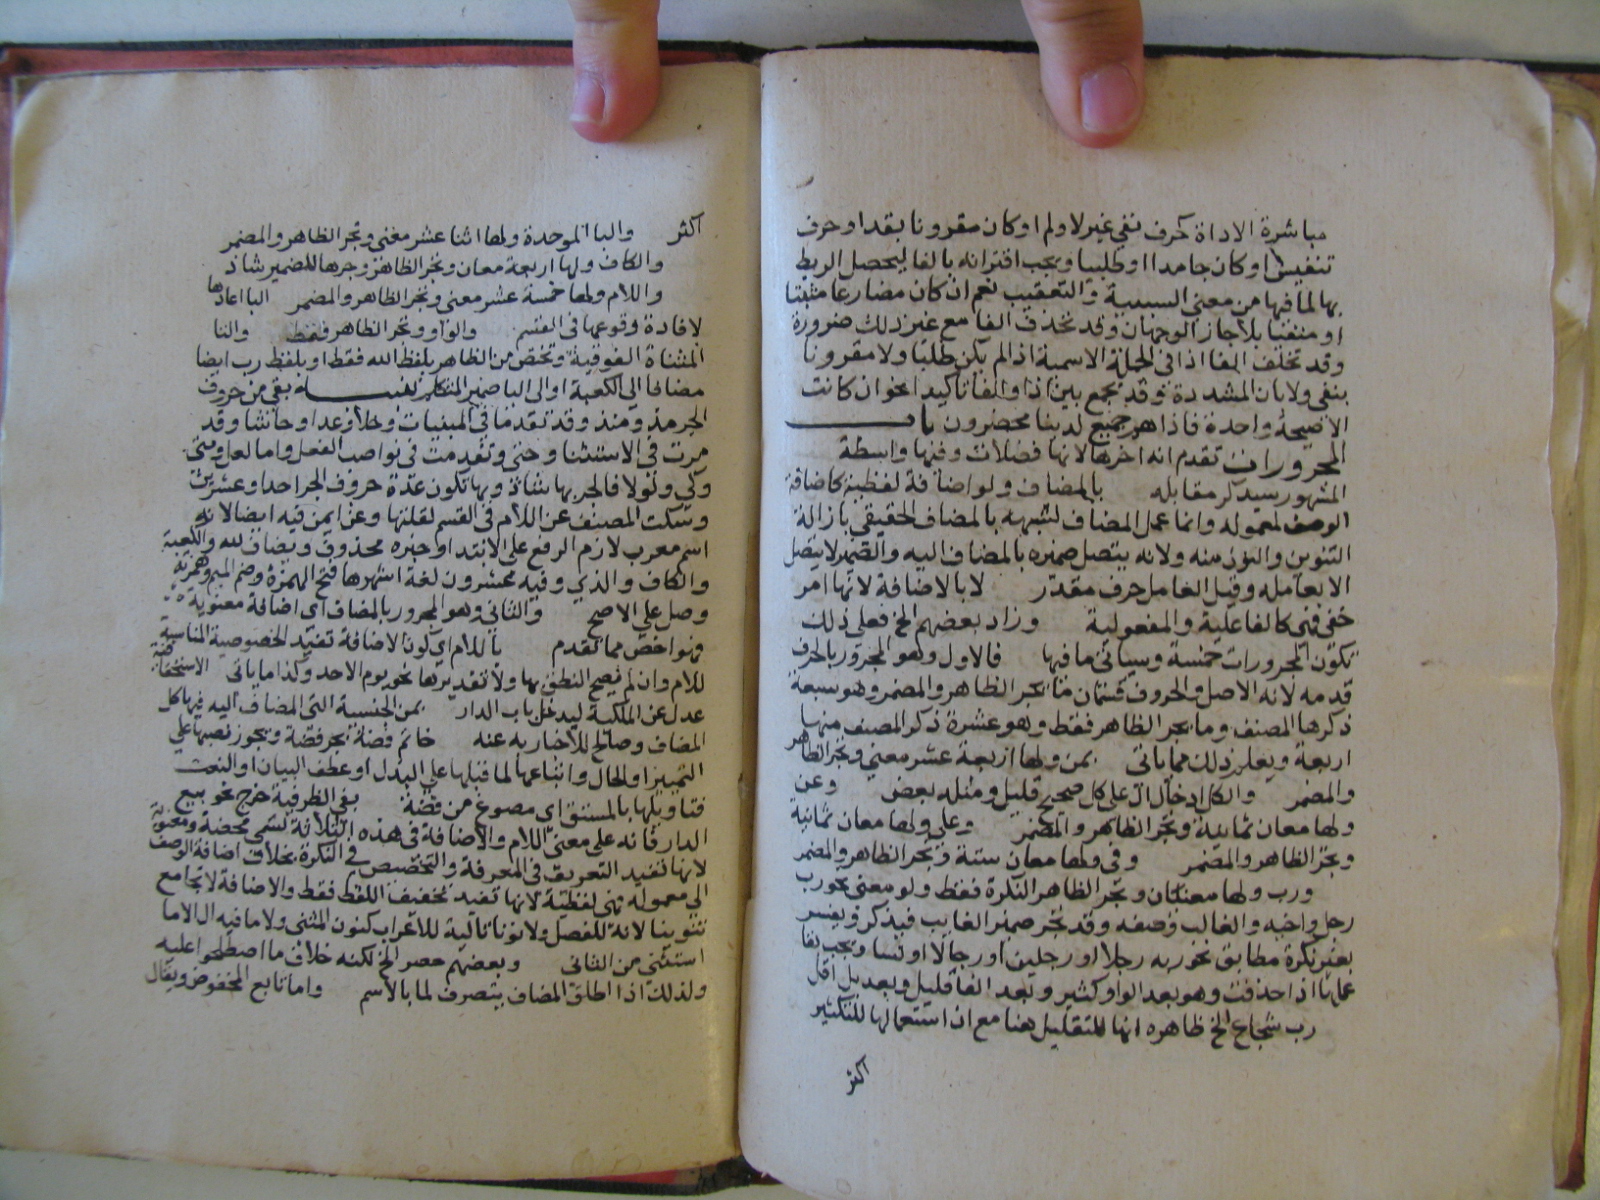 مباشرة الاداة كحرف نفي غير لا ولم او كان مقرونا بقد او حرف
تنفيس او كان جامدا او طلبيا ويجب اقترانه بالفا ليحصل الربط
بها لما فيها من معنى السببية والتعقيب نعم ان كان مضارعا مثبتا
او منفيا بلا جاز الوجهان وقد تحذف الفا مع غير ذلك ضرورة
وقد تخلف الفا اذا في الجملة الاسمية اذا لم يكن طلبا ولا مقرونا
بنفي ولا بان المشددة وقد تجمع بين اذا والفا تأكيدا نحو ان كانت
الا صيحة واحدة فاذا هم جميع لدينا محضرون باب
المجرورات تقدم انه اخرها لانها فضلات وفيها واسطة
المشهور سيذكر مقابله بالمضاف ولو اضافة لفظية كاضافة
الوصف لمعموله وانما عمل المضاف لشبهه بالمضاف الحقيقي بازالة
التنوين والنون منه ولانه يتصل ضميره بالمضاف اليه والضمير لا يتصل
الا بعامله وقيل العامل حرف مقدر لا بالاضافة لانها امر
خفي فهي كالفاعلية والمفعولية وزاد بعضهم الخ فعلى ذلك
تكون المجرورات خمسة وسياتي ما فيها فالاول وهو المجرور بالحرف
قدمه لانه الاصل والحروف قسمان ما يجر الظاهر والمضمر وهو سبعة
ذكرها المصنف وما يجر الظاهر فقط وهو عشرة ذكر المصنف منها
اربعة ويعلم ذلك مما ياتى بمن ولها اربعة عشر معنى وتجر الظاهر
والمضمر والكل ادخال ال على كل صحيح قليل ومثله بعض وعن
ولها معان ثمانية وتجر الظاهر والمضمر وعلى ولها معان ثمانية
وتجر الظاهر والمضمر وفي ولها معان ستة وتجر الظاهر والمضمر
ورب ولها معنيان وتجر الظاهر النكرة فقط ولو معنى نحو رب
رجل واخيه والغالب وصفه وقد تجر ضمير الغايب فيذكر ويفسر
بعد نكرة مطابق نحو ربه رجلا او رجلين او رجالا او نسا ويجب بقا
عملها اذا حذفت وهو بعد الواو كثير وبعد الفا قليل وبعد بل اقل
رب شجاع الخ ظاهره انها للتقليل هنا مع ان استعمالها للتكثير
اكثر
اكثر والبا الموحدة ولها اثنا عشر معنى وتجر الظاهر والمضمر
والكاف ولها اربعة معان وتجر الظاهر وجرها للضمير شاذ
واللام ولها خمسة عشر معنى وتجر الظاهر والمضمر البا اعادها
لافادة وقوعها في القسم والواو وتجر الظاهر فقط والتا
المثناة الفوقية وتختص من الظاهر بلفظ الله فقط او بلفظ رب ايضا
مضافا الى الكعبة او الى اليا ضمير المتكلم لنفسه بقي من حروف
الجر مذ ومنذ وقد تقدما في المبنيات وخلا وعدا وحاشا وقد
مرت في الاستثنا وحتى وتقدمت في نواصب الفعل واما لعل ومتى
وكي ولولا فالجر بها شاذ وبها تكون عدة حروف الجر احدا وعشرين
وسكت المصنف عن اللام في القسم لقلتها وعن ايمن فيه ايضا لانه
اسم معرب لازم الرفع على الابتدا وخبره محذوف ويضاف لله والكعبة
والكاف والذي وفيه عشرون لغة اشهرها فتح الهمزة وضم الميم وهمزته
وصل على الاصح والثاني وهو المجرور بالمضاف اى اضافة معنوية
فهو اخص مما تقدم باللام اى لكون الاضافة تفيد الخصوصية المناسبة
للام وان لم يصح النطق بها ولا تقديرها نحو يوم الاحد وكذا ما ياتى الاستحقاقية
عدل عن الملكية ليدخل باب الدار بمن الجنسية التي المضاف اليه فيها كل
المضاف وصالح للاخبار به عنه خاتم فضة بجر فضة ويجوز نصبها على
التمييز او الحال واتباعها لما قبلها على البدل او عطف البيان او النعت
فتاويلها بالمشتق اي مصوغ من فضة بفي الظرفية خرج نحو بيع
الدار فانه على معنى اللام والاضافة في هذه الثلاثة تسمى محضة ومعنوية
لانها تفيد التعريف في المعرفة والتخصيص في النكرة بخلاف اضافة الوصف
الى معموله فهي لفظية لانها تفيد تخفيف اللفظ فقط والاضافة لا تجامع
تنوينا لانه للفصل ولا نونا تالية للاعراب كنون المثنى ولا ما فيه ال الا ما
استثني من الثاني وبعضهم حصر الخ لكنه خلاف ما اصطلحوا عليه
ولذلك اذا اطلق المضاف ينصرف لما بالاسم واما تابع المخفوض ويقال